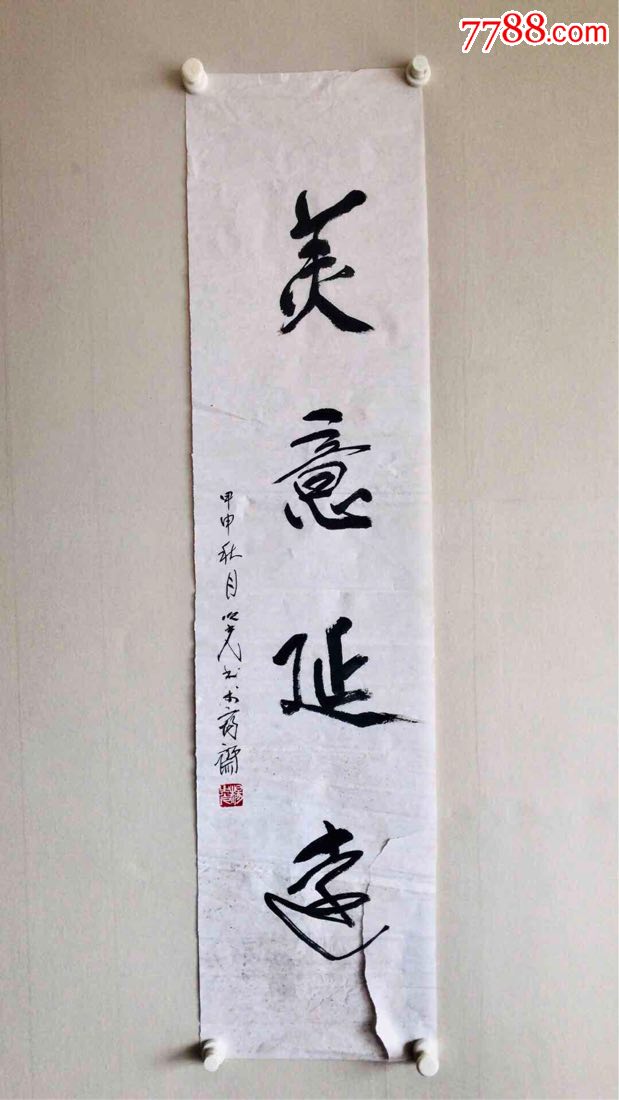 7788.com
美意延远
甲申秋月 书于 斋